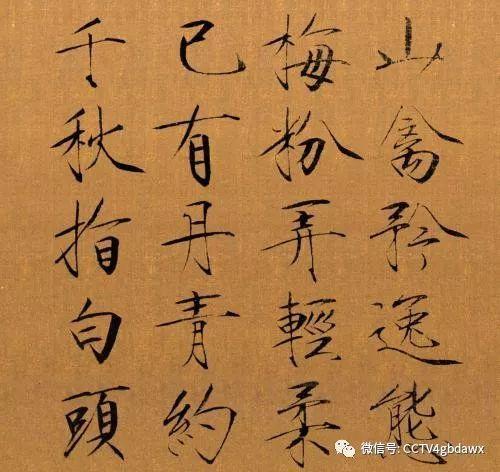 山禽矜逸態
梅粉弄輕柔
已有丹青約
千秋指白頭
微信号: CCTV4gbdawx